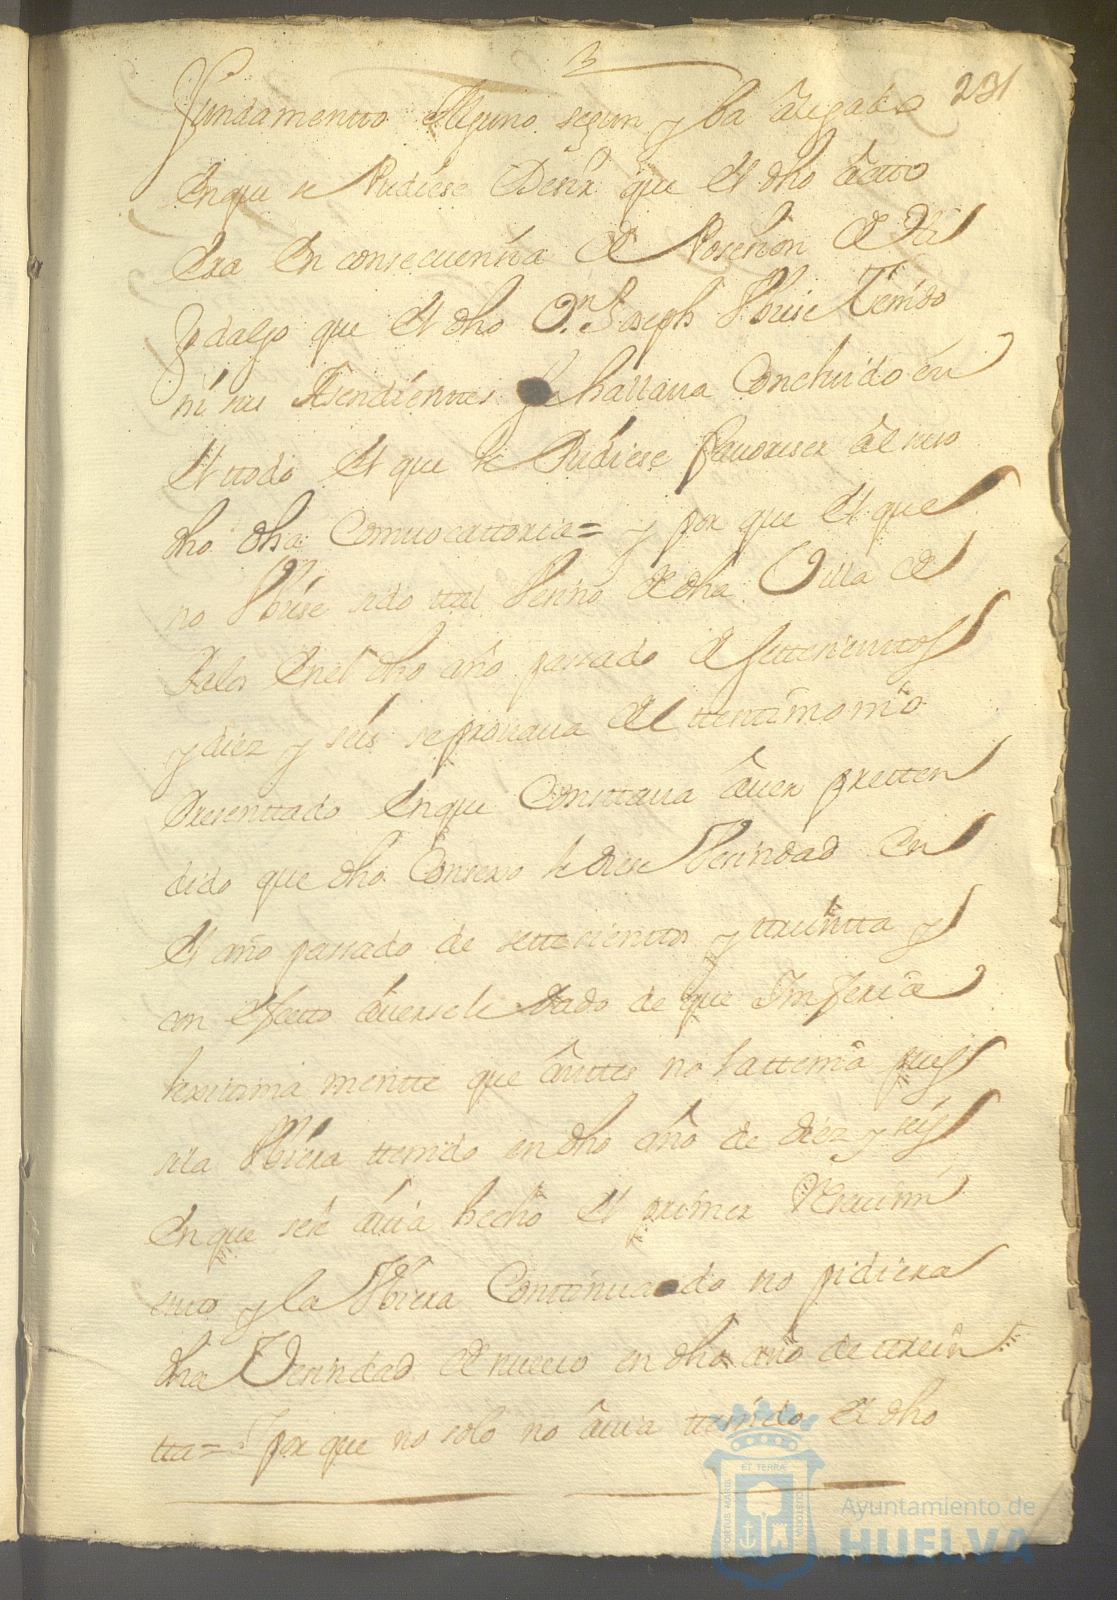 3
231
fundamentto Alguno segun y ba alegado
Enque se Pudiese Desir que El dho actto
Era En consecuensia de Posesion de Hi
Jodalgo que El dho Dn. Joseph Vbise Tenido
ni sus Asendienttes se hallaua Concluido en
El ttodo El que se Pudiese fauoreser al suso
dho dha Comuocattoria = y por que El que
no Vbiese sido ttal Vesino de dha Villa de
Palos Enel dho año passado de Settesienttos
y diez y seis se prouaua del ttesttimonio
Presenttado Enque Consttaua auer pretten
dido que dho Consexo le diese Vesindad En
El año passado de settesienttos y ttreintta y
con Efectto auersele dado de que Imferia
lexittima mentte que anttes no la ttenia pues
si la Vbiera ttenido en dho año de diez y seis
En que sele auia hecho El primer Reciuimi
entto y la Vbiera Continuado no pidiera
dha Vesindad de nueuo en dho año de ttrein
tta = Y por que no solo no auia ttenido El dho
ET TERRÆ
PORTUS MARIS
CUSTODIA
Ayuntamiento de
HUELVA